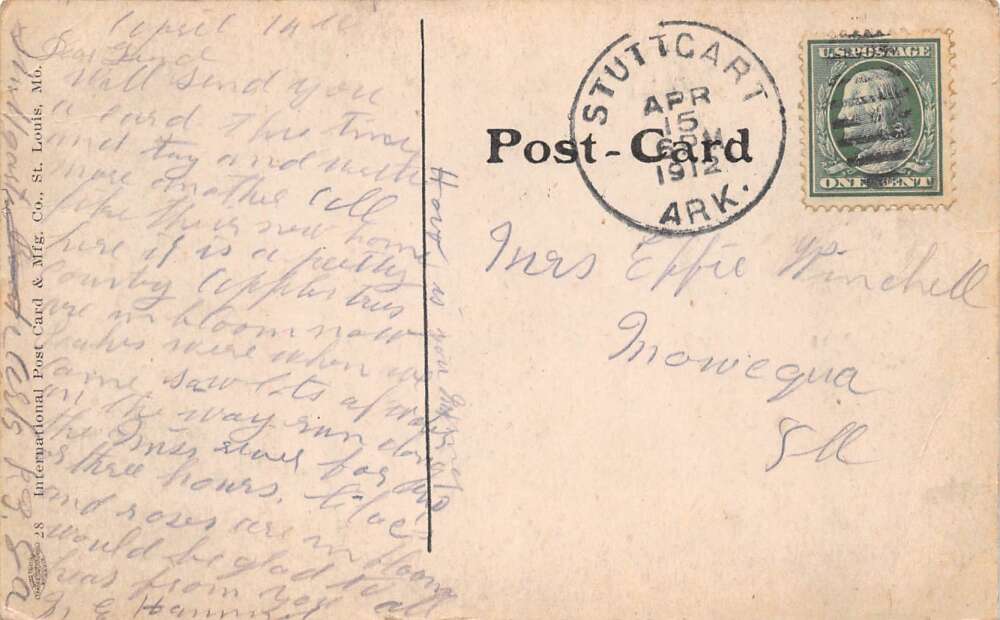 April 14
Dear Friend
Will send you
a card this time
and try and write
more another
like this new home
here it is a pretty
country apples trees
are in bloom now
Peaches were when we
came saw lots of water
on the way run down
the Miss river for two
or three hours. lilac
and roses are in bloom
would be glad to
hear from you all
How is you
28 International Post Card & Mfg. Co., St. Louis, Mo.
Post-Card
STUTTGART
APR
15
6 PM
1912
ARK.
U.S. POSTAGE
ONE CENT
Mrs Effie Winchell
Mowequa
Ill